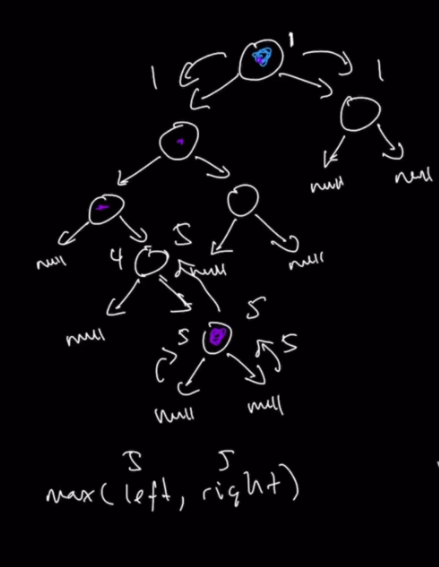 1
1 1
null null
5
null 4 null null
5
null 5 5
null null
5 5
max(left, right)